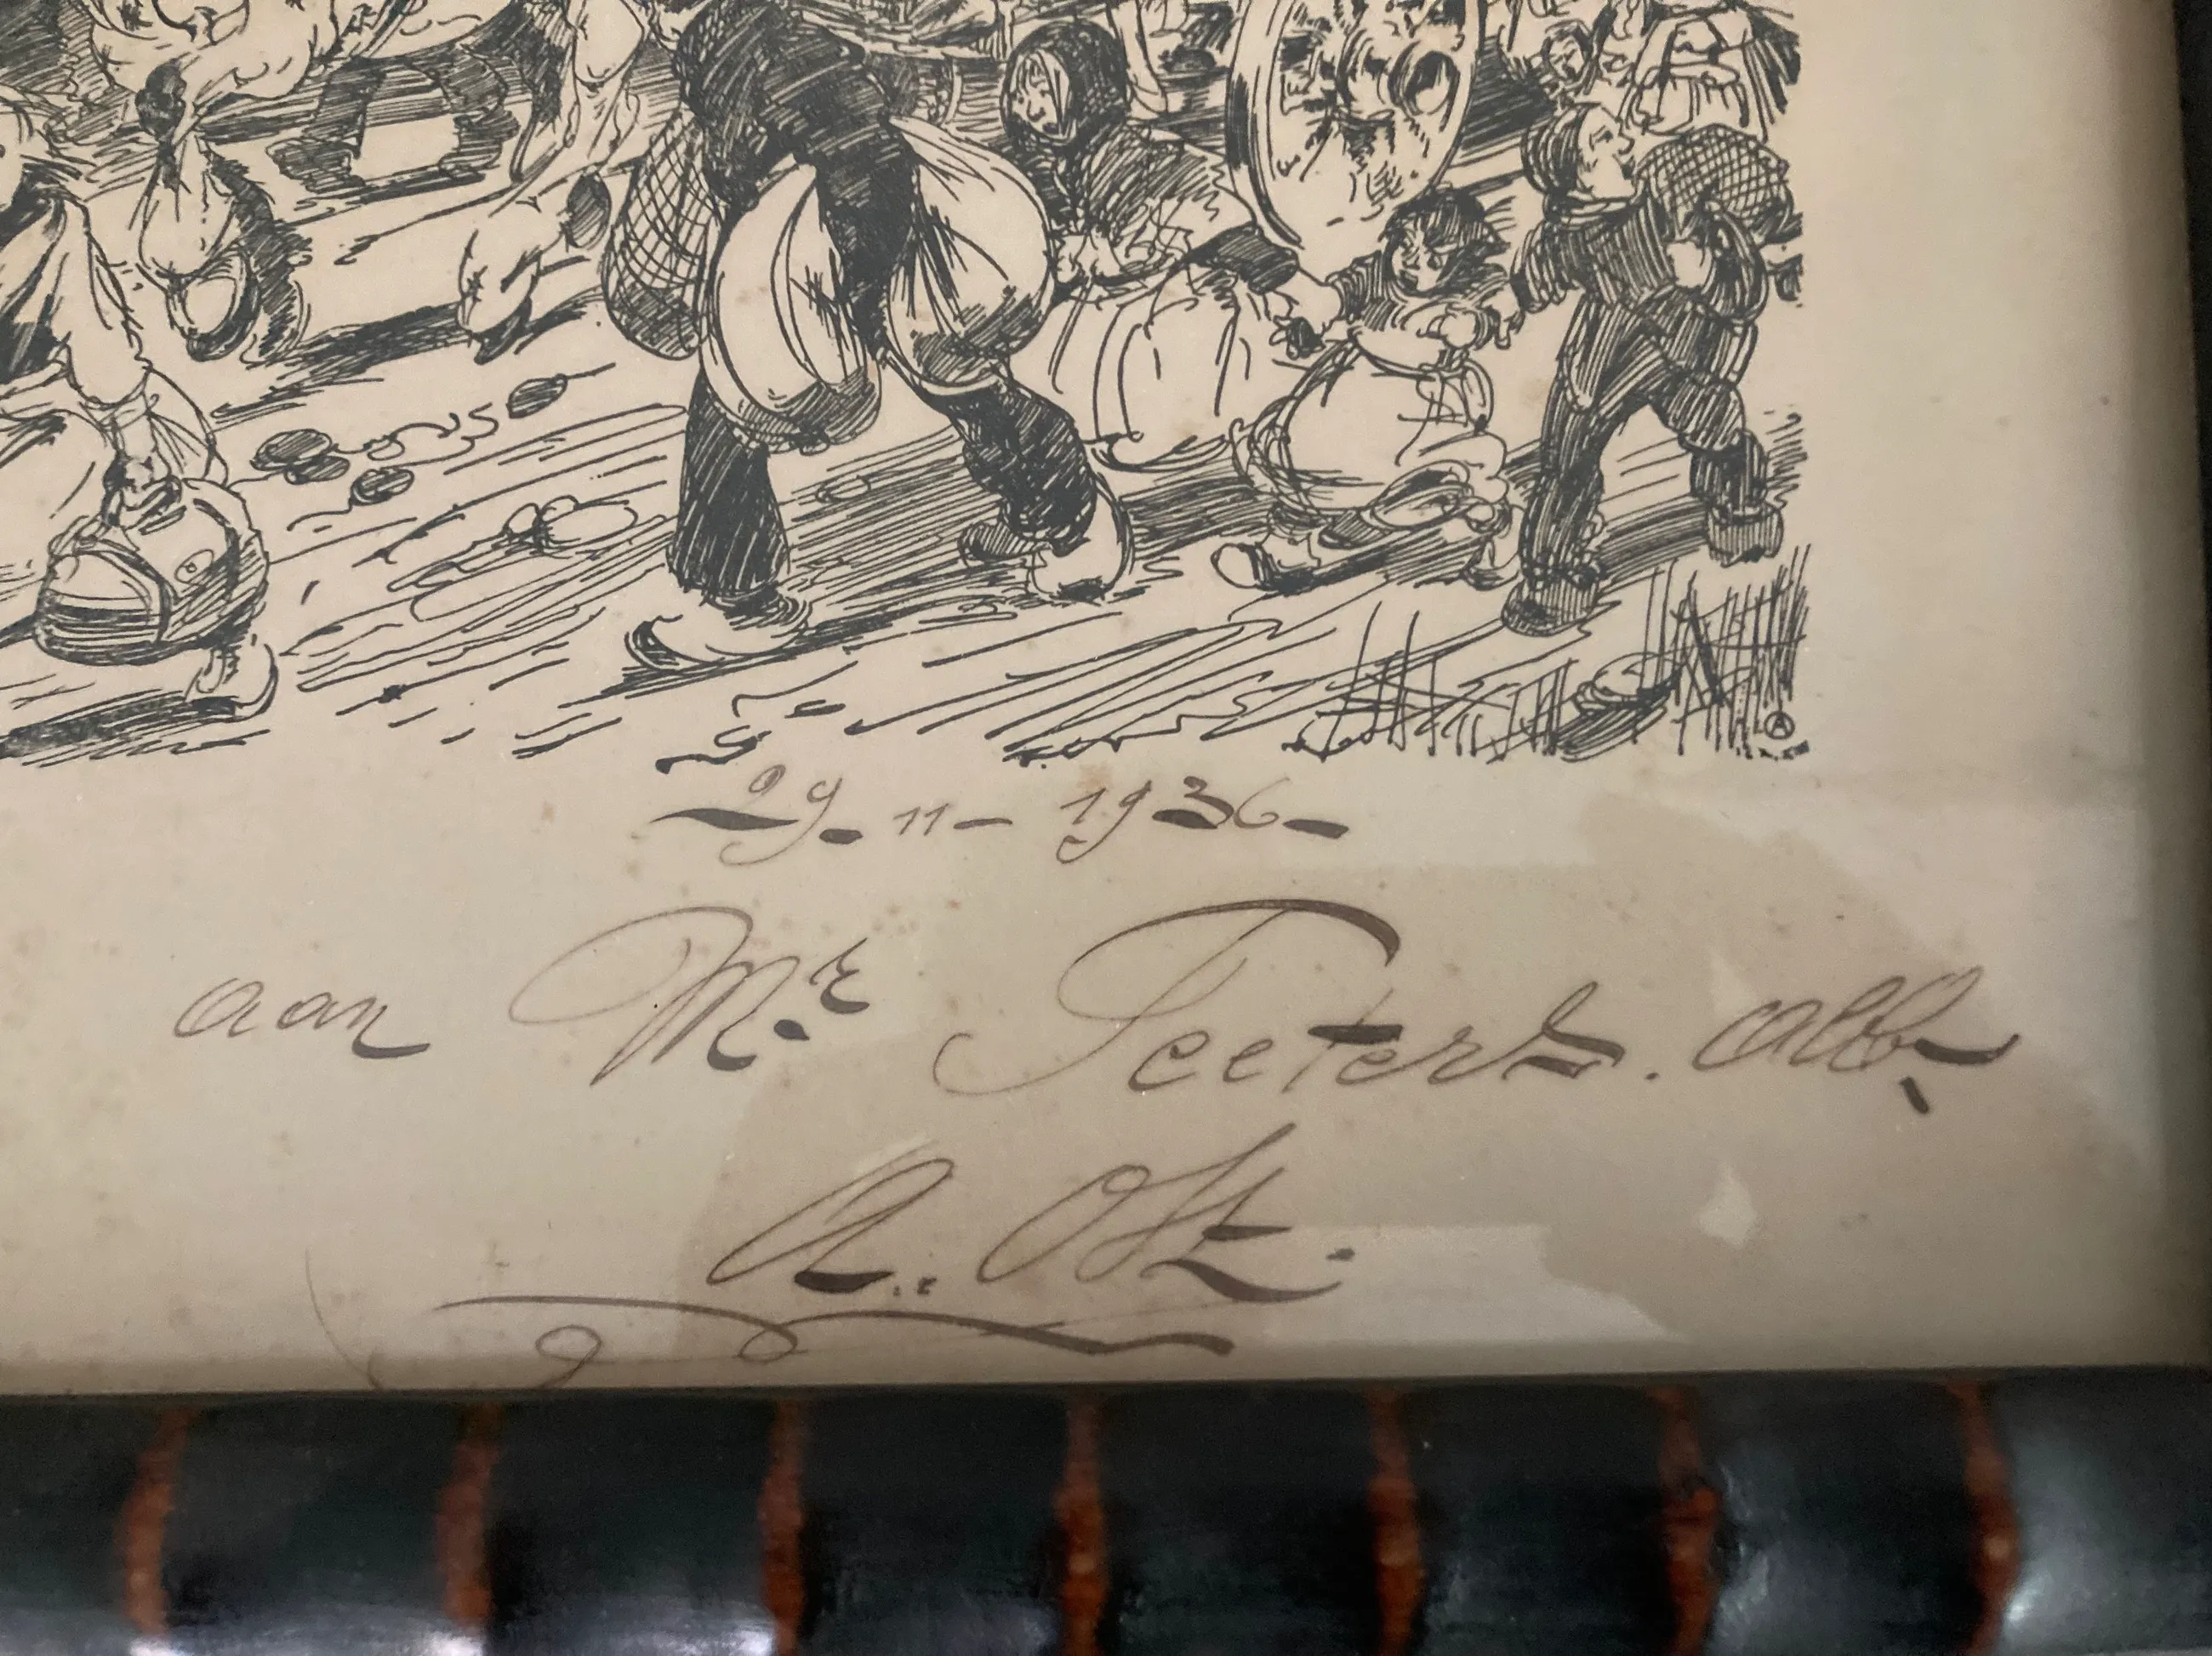 29-11-1936-
aan Mr Peeters. Alb.
A. Ost.
A